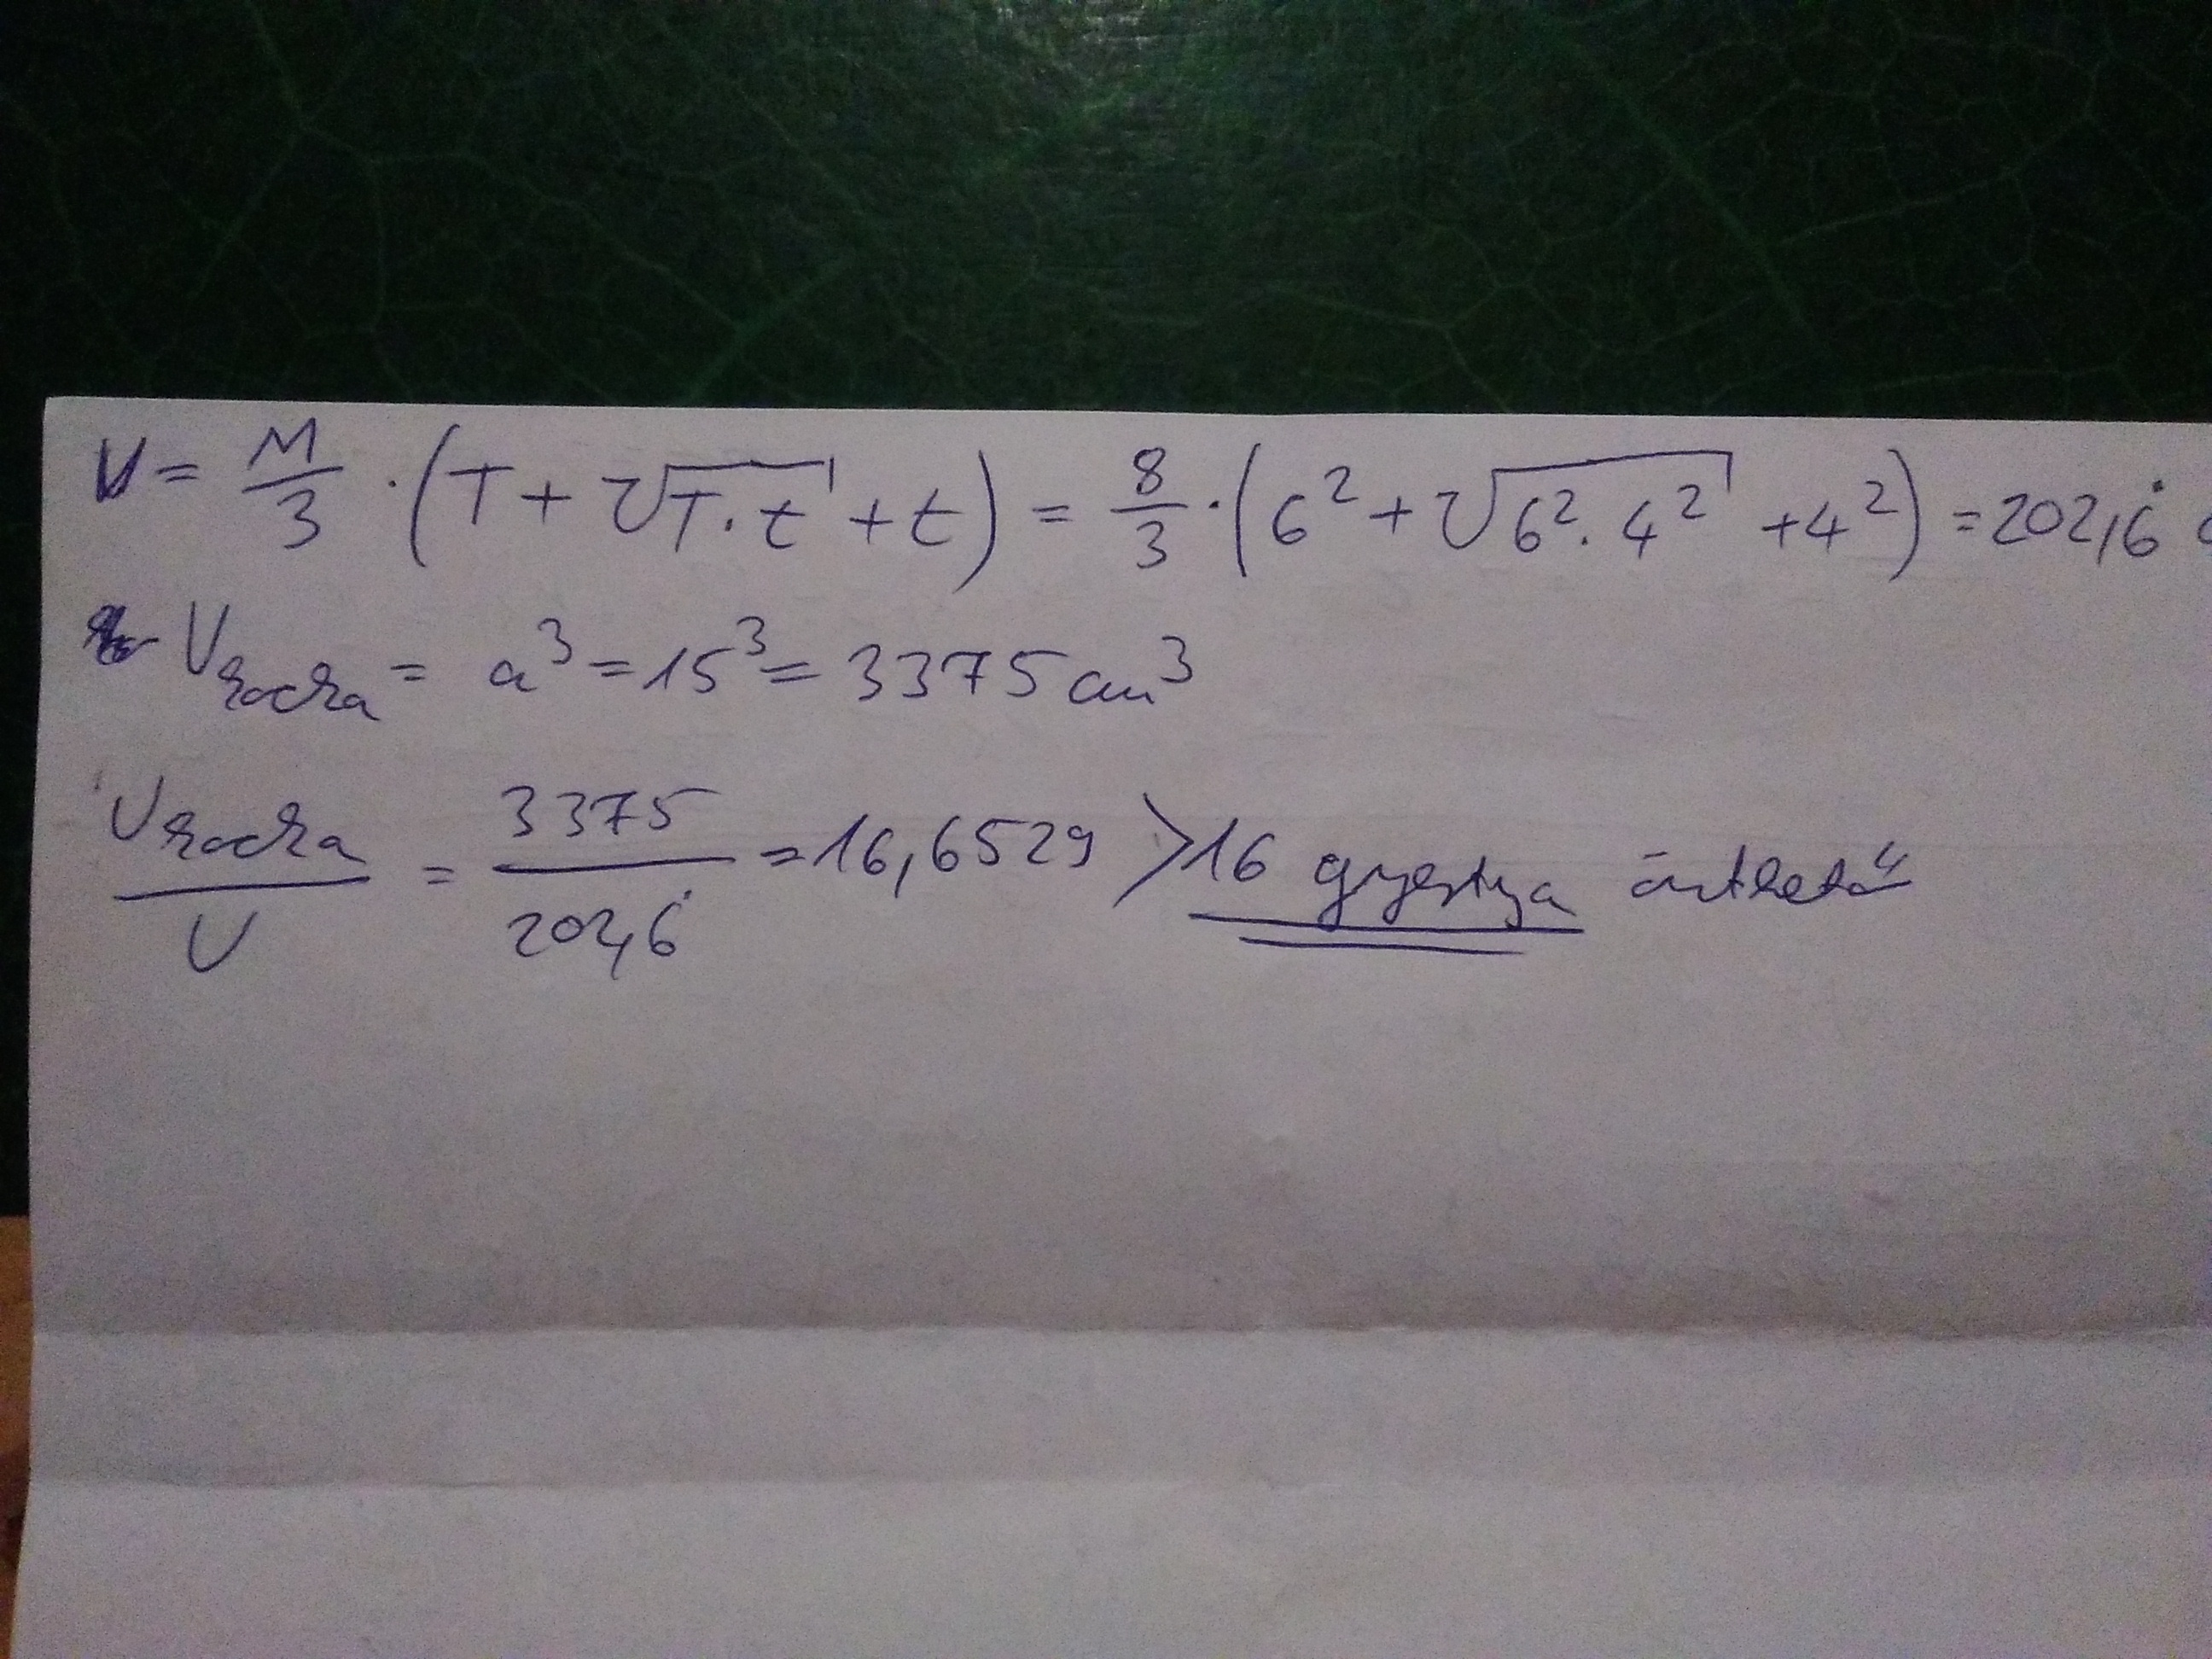 V = M/3 · (T + √T·t + t) = 8/3 · (6² + √6²·4² + 4²) = 202,6̇ c
V kocka = a³ = 15³ = 3375 cm³
V kocka / V = 3375 / 202,6̇ = 16,6529 > 16 gyertya önthető